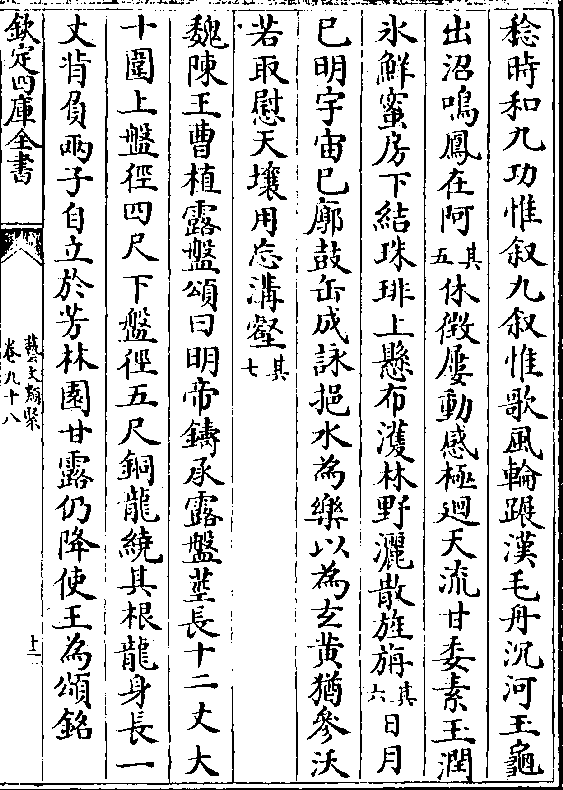 稔時和九功惟叙九叙惟歌風輪躧漢毛舟沉河玉龜
出沼鳴鳳在阿其五休徴屢動感極廻天流甘委素玉潤
氷鮮蜜房下結珠琲上懸布濩林野灑散旌旃其六日月
已明宇宙已廓鼓缶成詠挹水為樂以為玄黄猶參沃
若取慰天壤用忘溝壑其七
魏陳王曹植露盤頌曰明帝鑄承露盤莖長十二丈大
十圍上盤徑四尺下盤徑五尺銅龍繞其根龍身長一
丈背負兩子自立於芳林園甘露仍降使王為頌銘
欽定四庫全書
藝文類聚
卷九十八
十二